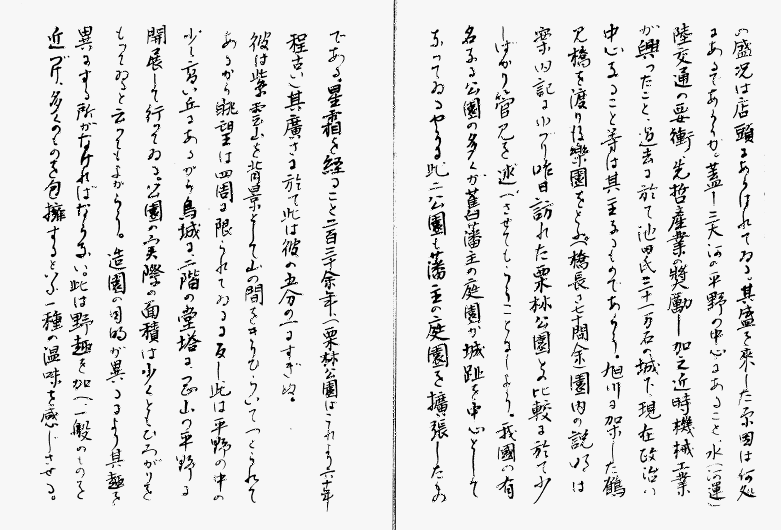 の盛况は店頭にあらはれてゐる。其盛を来した原因は何処
にあるであらうか。蓋し三大河の平野の中心にあること、水(河運)
陸交通の要衝、先哲産業の奨励し加之近時機械工業
が興つたこと、過去に於て池田氏三十一万石の城下、現在政治の
中心なること等は其主なるものであらう。旭川に架した鶴
見橋を渡り後樂園をとふ(橋長さ七十間余)園内の説明は
案内記にゆづり昨日訪れた栗林公園との比較に於て少
しばかり管見を述べさせてもらうことゝしよう。我國の有
名なる公園の多くが舊藩主の庭園か城趾を中心として
なつてゐるやうに此二公園も藩主の庭園を擴張したもの
である星霜を経ること二百三十余年、(栗林公園はこれより六十年
程古い)其廣さに於て此は彼の五分の一にすぎぬ。
彼は紫雲山を背景として山の間をきりひらいてつくられて
あるから眺望は四周に限られてゐるに反し此は平野の中の
少し高い丘にあるから烏城は二階の堂塔は岡山の平野に
開展して行つてゐる。公園の実際の面積は少くともひろがりを
もつてゐると云つてもよからう。造園の目的が異なるより其趣を
異にする所がなければならない。此は野趣を加へ一般のものを
近づけ、多くのものを包擁するといふ一種の温味を感じさせる。